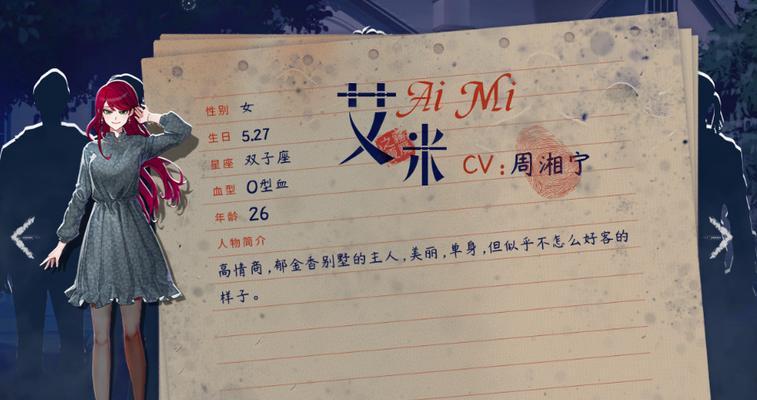 艾米
Ai Mi
CV：周湘宁
性别 女
生日 5.27
星座 双子座
血型 O型血
年龄 26
人物简介
高情商，郁金香别墅的主人，美丽，单身，但似乎不怎么好客的
样子。